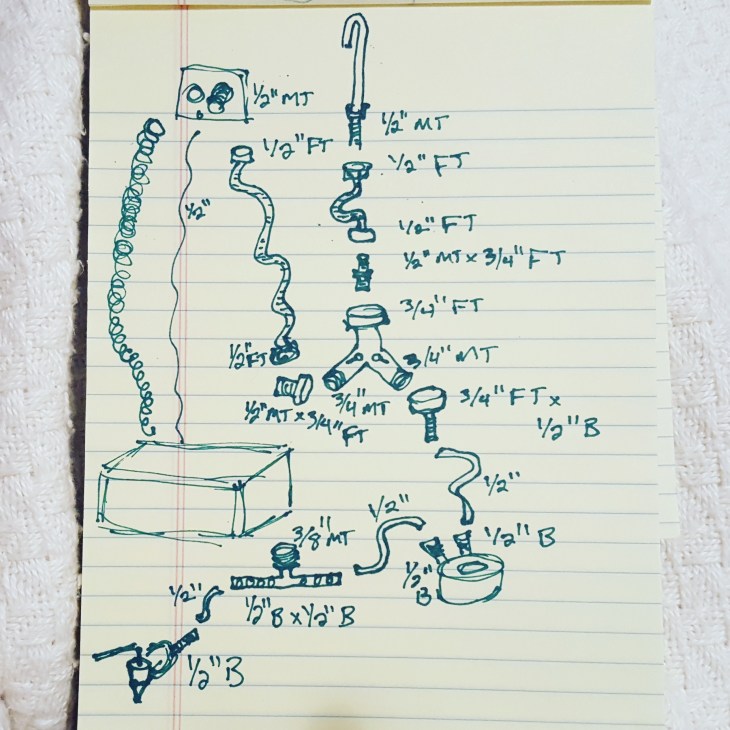 1/2" MT
1/2" MT
1/2" FT
1/2" FT
1/2"
1/2" FT
1/2" MT x 3/4" FT
3/4" FT
1/2" FT
3/4" MT
3/4" MT
1/2" MT x 3/4" FT
3/4" FT x
1/2" B
1/2"
1/2"
3/8" MT
1/2" B
1/2" B
1/2"
1/2" B x 1/2" B
1/2" B